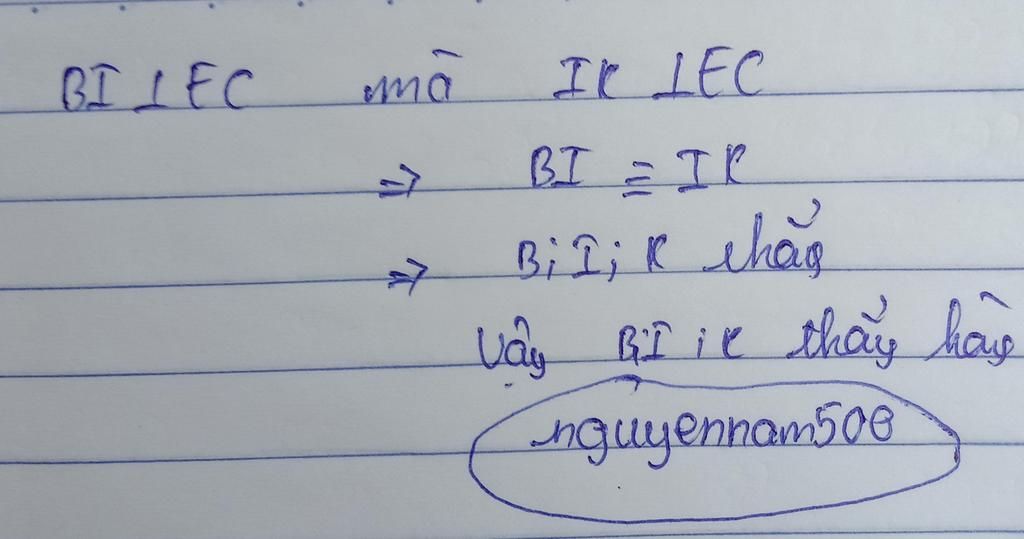 BI ⊥ EC mà IK ⊥ EC
=> BI ≡ IK
=> B; I; K thẳg
Vậy B; I; K thẳg hàg
nguyennam508